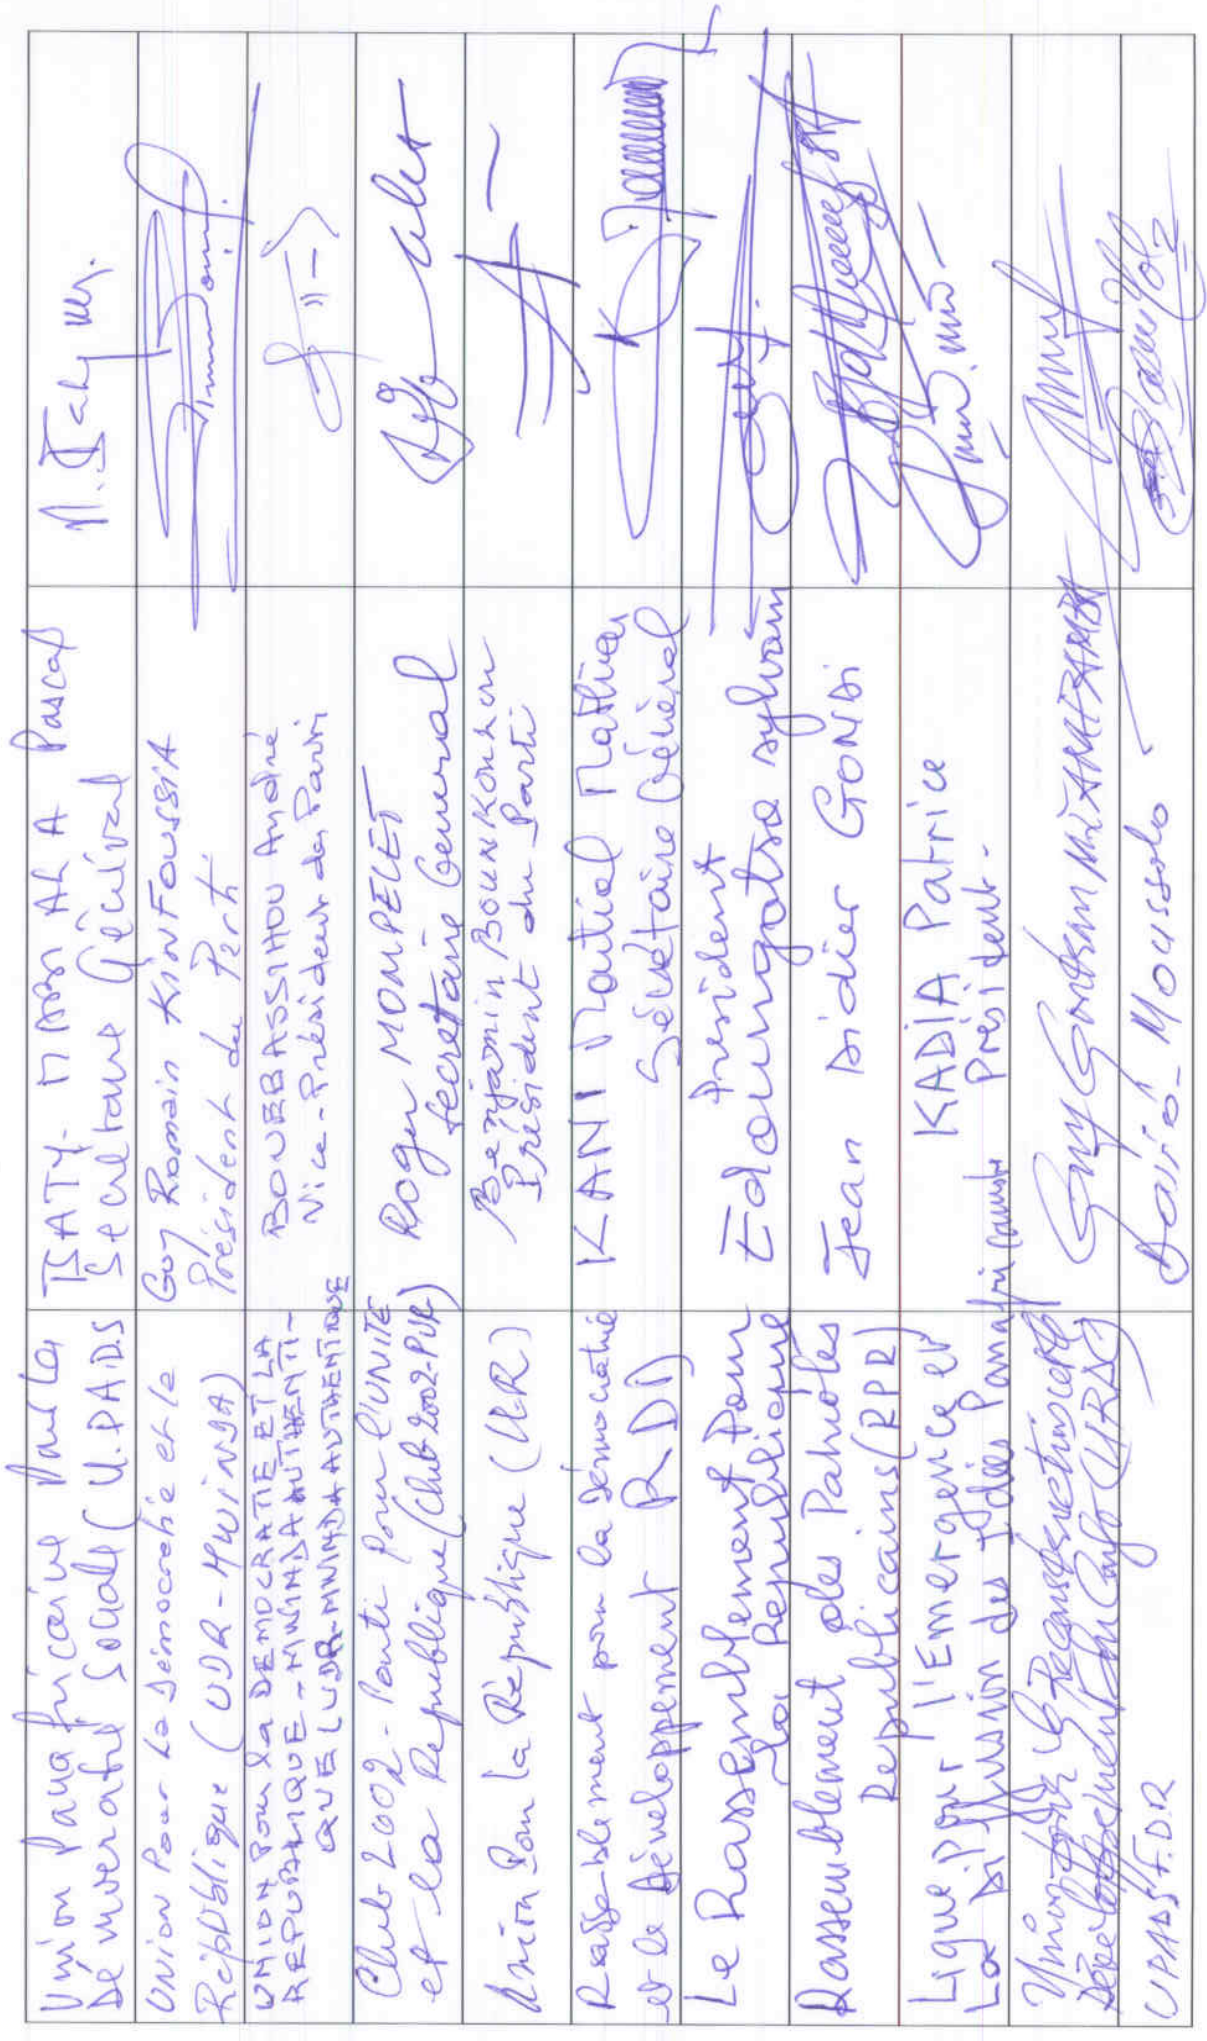 Union Panafricaine pour la
Démocratie Sociale (U.PA.D.S
TSATY-MABIALA Pascal
Secrétaire Général
Union Pour la Démocratie et la
République (UDR-MWINDA)
Guy Romain KINFOUSSIA
Président du Parti
UNION Pour la DEMOCRATIE ET LA
REPUBLIQUE - MWINDA AUTHENTI-
QUE (UDR-MWINDA AUTHENTIQUE
BOUEBASSIHOU André
Vice-Président du Parti
Club 2002 - Parti Pour l'UNITE
et la République (Club 2002-PUR)
Roger MOMPELET
Secretaire General
Union Pour la République (UR)
Benjamin BOUNKOULOU
Président du Parti
Rassemblement pour la Démocratie
et le Développement RDD
KANI Martial Mathieu
Sécrétaire Général
Le Rassemblement Pour
La République
President
Edoungatso sylvain
Rassemblement des Patriotes
Republicains (RPR)
Jean Didier GONDI
Ligue Pour l'Emergence et
La Diffusion des Idées Panafricaines
KADIA Patrice
Président-
Union pour la Reconstruction et le
Développement du Congo (URDC)
UPADS F.D.R
David-Moussolo